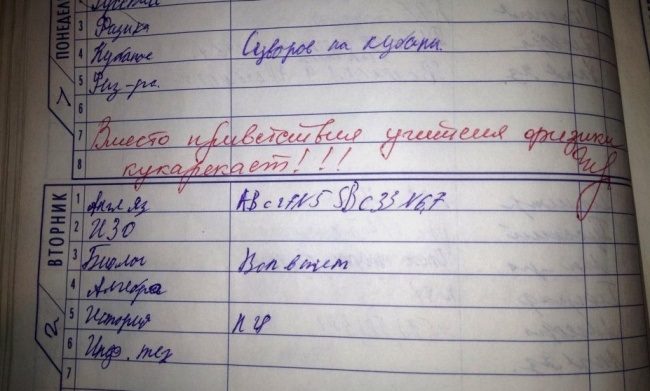 ПОНЕДЕЛ
3 Физика
4 Кубанов Суворов на кубани.
5 Физ-ра.
6
7 Вместо приветствия учителя физики
8 кукарекает!!!
ВТОРНИК
1 Англ яз АВ с 27 N5 SB с 33 N6,7
2 ИЗО
3 Биолог
4 Алгебра
5 История п 48
6 Инф. тех
7